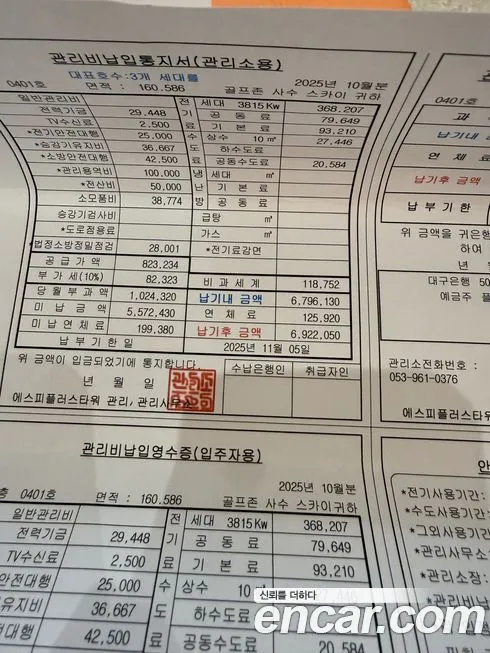 관리비납입통지서(관리소용)
대표호수:3개 세대를
2025년 10월분
0401호 면적 : 160.586 골프존 사수 스카이 귀하
일반관리비 전 세대 3815Kw 368,207
전력기금 29,448 기 공동료 79,649
TV수신료 2,500 료 기본료 93,210
*전기안전대행 25,000 수 상수 10㎥ 27,446
*승강기유지비 36,667 도 하수도료
*소방안전대행 42,500 료 공동수도료 20,584
*관리용역비 100,000 냉 세대 ㎥
*전산비 50,000 난 기본료
소모품비 38,774 방 공동료
승강기검사비 급탕 ㎥
*도로점용료 가스 ㎥
법정소방정밀점검 28,001 *전기료감면
공급가액 823,234
부가세(10%) 82,323 비과세계 118,752
당월부과액 1,024,320 납기내 금액 6,796,130
미납금액 5,572,430 연체료 125,920
미납연체료 199,380 납기후 금액 6,922,050
납부기한일 2025년 11월 05일
위 금액이 입금되었기에 통지합니다.
년 월 일
수납은행인 취급자인
에스피플러스타워 관리,관리사무소
0401호
과
납기내
연체료
납기후 금액
납부기한
위 금액을 귀은행
하여
년
대구은행 50
예금주
관리소전화번호 :
053-961-0376
에스피플러스타워
관리비납입영수증(입주자용)
2025년 10월분
층 0401호 면적 : 160.586 골프존 사수 스카이귀하
일반관리비 전 세대 3815Kw 368,207
전력기금 29,448 기 공동료 79,649
TV수신료 2,500 료 기본료 93,210
안전대행 25,000 수 상수 10 27,446
유지비 36,667 도 하수도료
전대행 42,500 료 공동수도료 20,584
안
*전기사용기간:
*수도사용기간:
*그외사용기간
*관리사무소
*관리소장:
*관리비납
신뢰를 더하다
encar.com